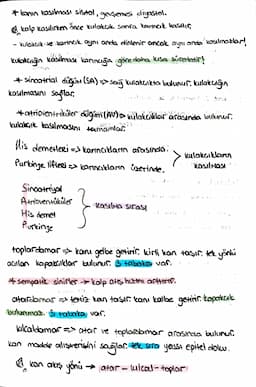 * kanın kasılması sistol, gevşemesi diyastol.
@ kalp kasılırken önce kulakçık sonra karıncık kasılır.
- kulakcık ve karıncık aynı anda dinlenir ancak aynı anda kasılmazlar!
kulakçığın kasılması karıncığa göre daha kısa sürelidir!
* sinoatrial düğüm (SA) => sağ kulakcıkta bulunur. kulakçığın
kasılmasını sağlar.
* atrioventriküler düğüm (AV) => kulakcıklar arasında bulunur.
kulakcık kasılmasını tamamlar.
His demetleri => karıncıkların arasında.
Purkinje lifleri => karıncıkların üzerinde.
> kulakcıkların
kasılması
Sinoatriyal
Atrioventriküler
His demet
Purkinje
kasılma sırası
toplardamar => kanı gelbe getirir. kirli kan taşır. tek yönlü
açılan kapakcıklar bulunur. 3 tabaka var.
* sempatik sinirler -> kalp atış hızını arttırır.
atardamar => temiz kan taşır. kanı kalbe getirir. kapakcık
bulunmaz. 3 tabaka var.
kılcaldamar => atar ve toplardamar arasında bulunur.
kan madde alışverişini sağlar. tek sıra yassı epitel doku.
@ kan akış yönü -> atar - kılcal - toplar